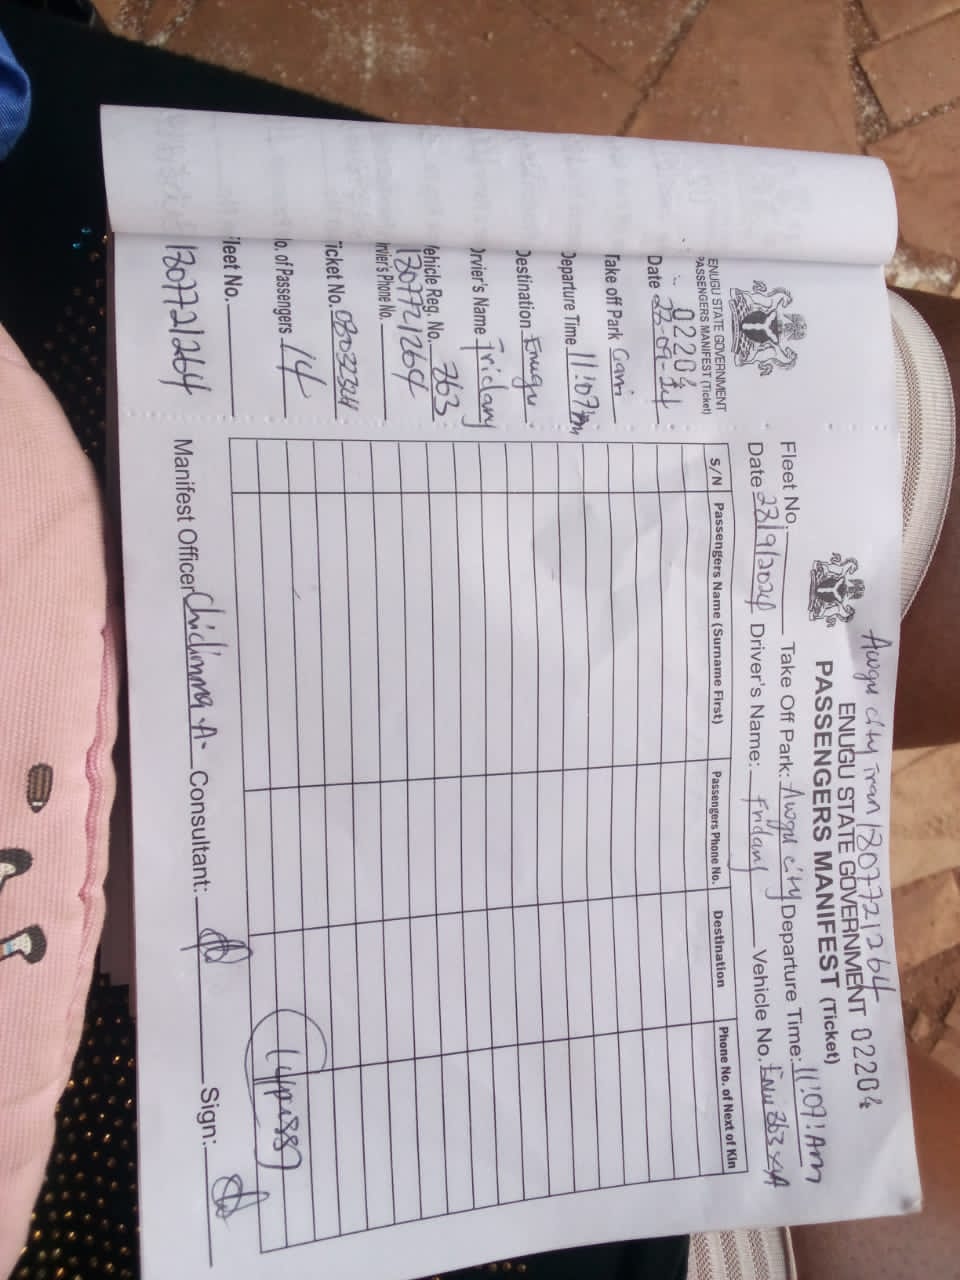 ENUGU STATE GOVERNMENT
PASSENGERS MANIFEST (Ticket)
02204
Date 23-09-24
Take off Park Gari
Departure Time 11:07am
Destination Enugu
Drvier's Name Friday
Vehicle Reg. No. 363
180772/264
rvier's Phone No.
icket No. 0803232H
o. of Passengers 14
leet No.
180772/264
Awgu city Tran 180772/264
ENUGU STATE GOVERNMENT 02204
PASSENGERS MANIFEST (Ticket)
Fleet No. Take Off Park: Awgu city Departure Time: 11:07:Am
Date 23/9/2024 Driver's Name: Friday Vehicle No. ENU 363 XYA
S/N Passengers Name (Surname First) Passengers Phone No. Destination Phone No. of Next of Kin
14pass
Manifest Officer Chidimma A- Consultant: Sign: